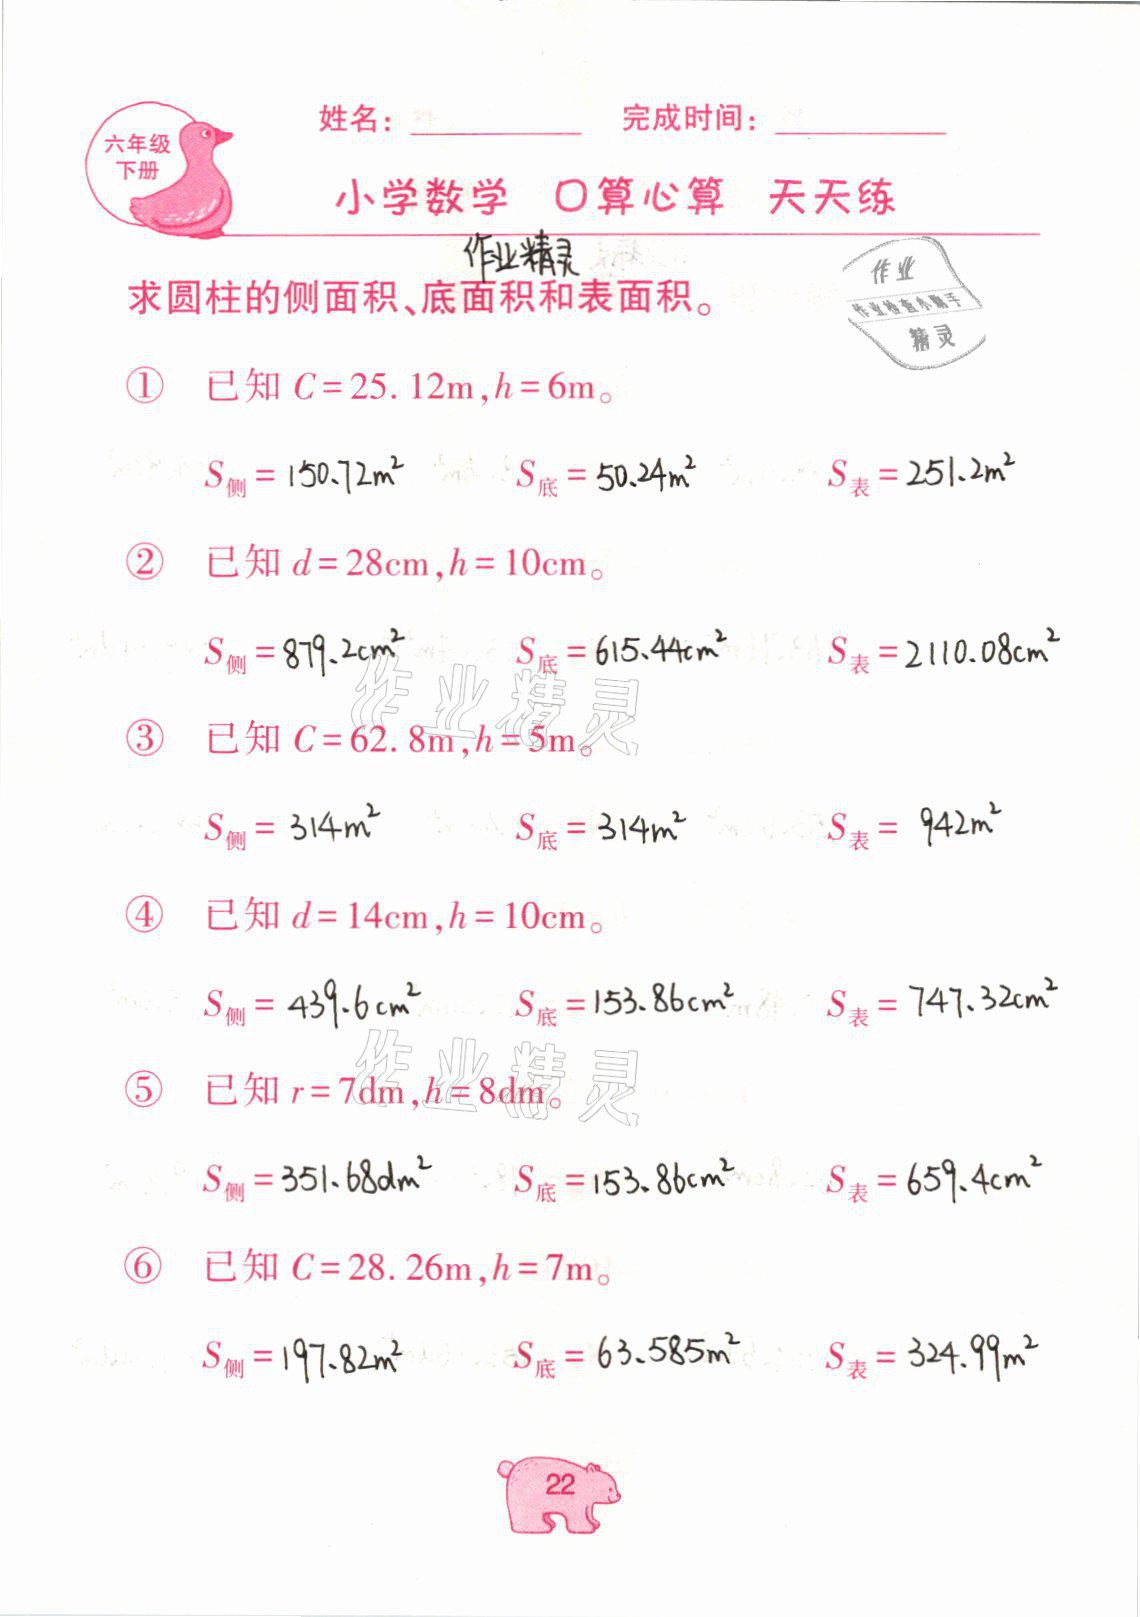 六年级
下册
姓名：
完成时间：
小学数学 口算心算 天天练
作业精灵
求圆柱的侧面积、底面积和表面积。
作业
作业检查小帮手
精灵
① 已知 C=25.12m,h=6m。
S侧=150.72m² S底=50.24m² S表=251.2m²
② 已知 d=28cm,h=10cm。
S侧=879.2cm² S底=615.44cm² S表=2110.08cm²
作业精灵
③ 已知 C=62.8m,h=5m。
S侧=314m² S底=314m² S表=942m²
④ 已知 d=14cm,h=10cm。
S侧=439.6cm² S底=153.86cm² S表=747.32cm²
作业精灵
⑤ 已知 r=7dm,h=8dm。
S侧=351.68dm² S底=153.86cm² S表=659.4cm²
⑥ 已知 C=28.26m,h=7m。
S侧=197.82m² S底=63.585m² S表=324.99m²
22